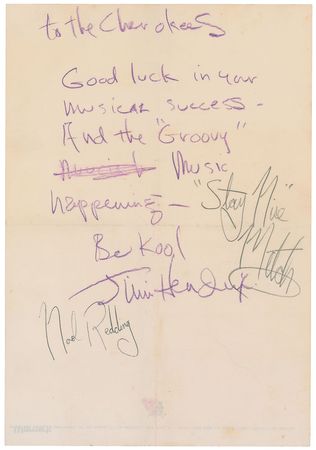 to the Cherokees
Good luck in your
musical success -
And the "Groovy"
Music
happening -
"Stay Nice"
Mitch
Be Kool
Jimi Hendrix
Noel Redding